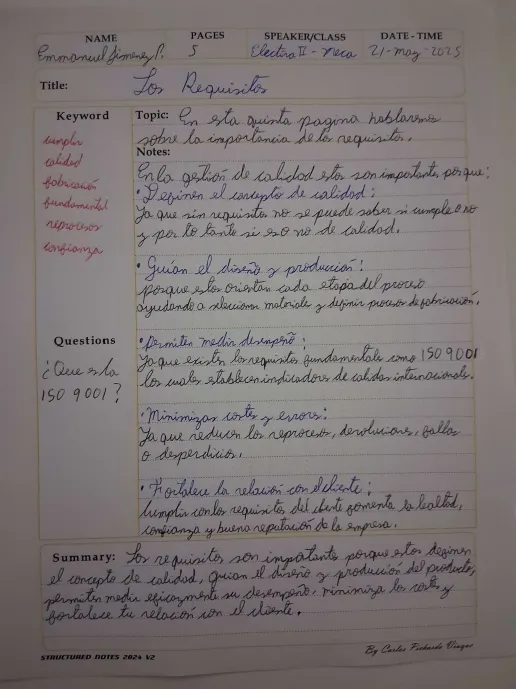 NAME PAGES SPEAKER/CLASS DATE - TIME
Emmanuel Jimenez P. 5 Electiva II - Meca 21-may-2025
Title: Los Requisitos
Keyword
cumplir
calidad
fabricación
fundamental
reprocesos
confianza
Topic: En esta quinta pagina hablaremos
sobre la importancia de los requisitos.
Notes:
En la gestión de calidad estos son importantes porque:
• Definen el concepto de calidad:
Ya que sin requisitos no se puede saber si cumple o no
y por lo tanto si es o no de calidad.
• Guían el diseño y producción:
porque estos orientan cada etapa del proceso
ayudando a seleccionar materiales y definir procesos de fabricación.
Questions
¿Que es la
ISO 9001?
• Permiten medir desempeño:
Ya que existen los requisitos fundamentales como ISO 9001
los cuales establecen indicadores de calidad internacionales.
• Minimizar costes y errores:
Ya que reducen los reprocesos, devoluciones, fallas
o desperdicios.
• Fortalece la relación con el cliente:
Cumplir con los requisitos del cliente fomenta la lealtad,
confianza y buena reputación de la empresa.
Summary: Los requisitos son importantes porque estos definen
el concepto de calidad, guian el diseño y producción del producto,
permiten medir eficazmente su desempeño, minimiza los costes y
fortalece tu relación con el cliente.
STRUCTURED NOTES 2024 V2
By Carlos Pichardo Viuque